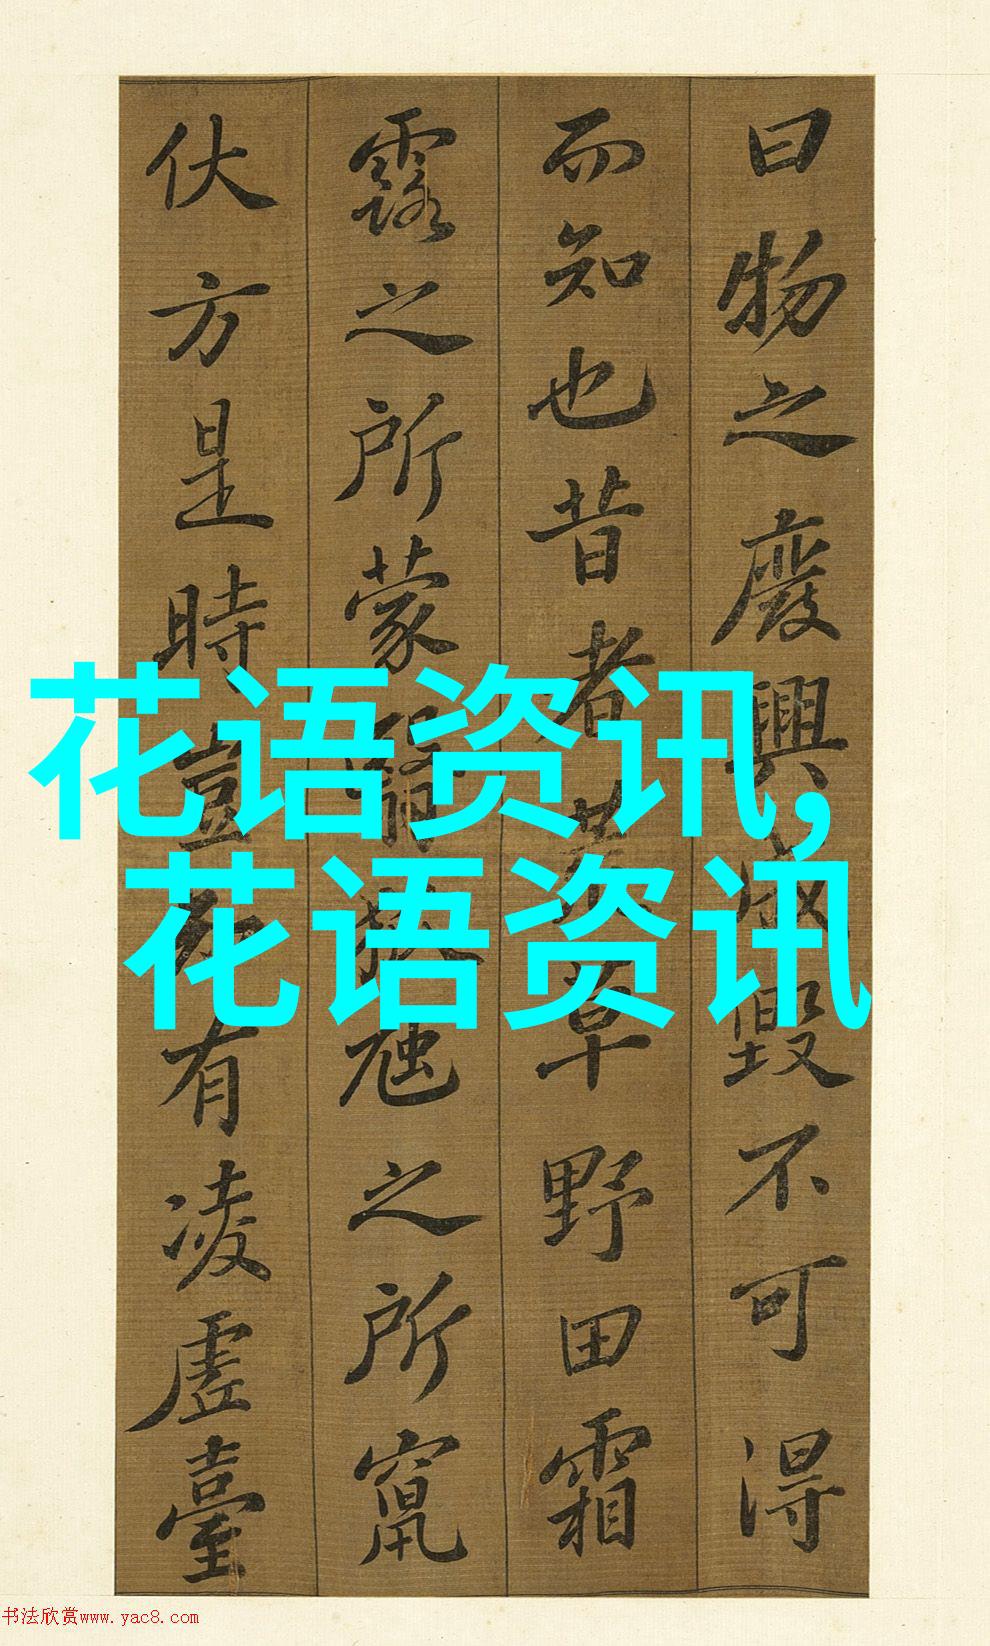 曰物之廢興成毀不可得
而知也昔者荒草野田霜
露之所蒙翳狐虺之所竄
伏方是時豈知有凌虛臺
花语资讯,
花语资讯
书法欣赏www.yac8.com